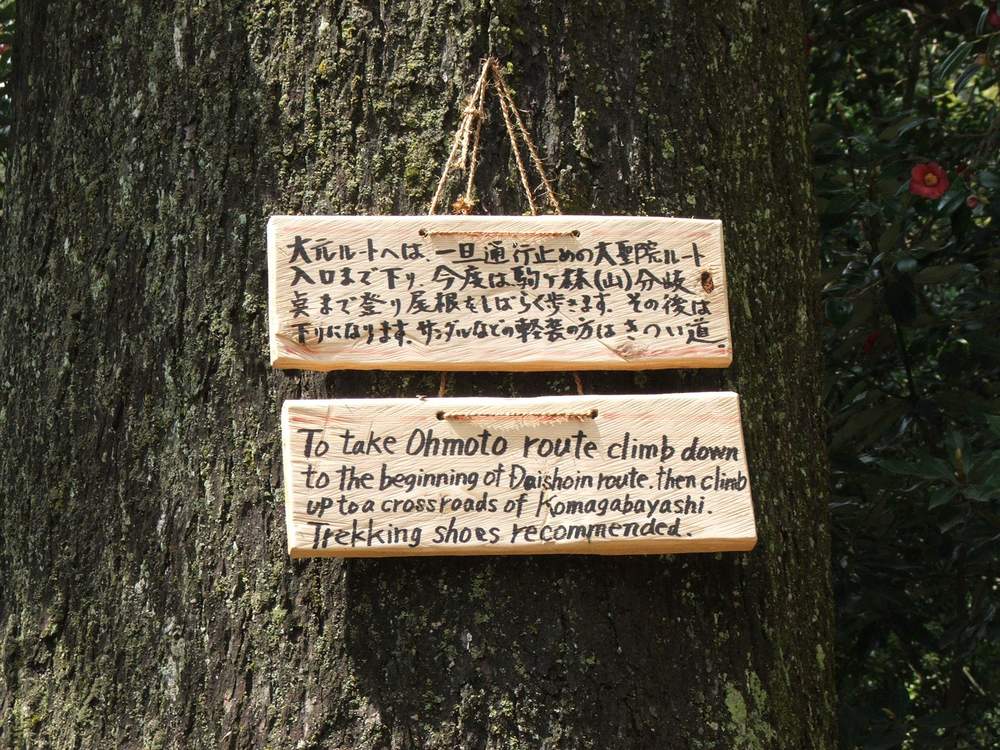 大元ルートへは、一旦通行止めの大聖院ルート
入口まで下り、今度は駒ケ林(山)分岐
点まで登り尾根をしばらく歩きます。その後は
下りになります。サンダルなどの軽装の方はきつい道。
To take Ohmoto route climb down
to the beginning of Daishoin route. then climb
up to a crossroads of Komagabayashi.
Trekking shoes recommended.